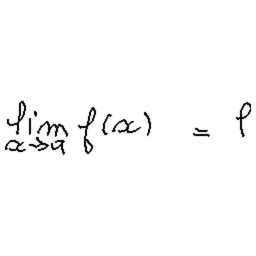 lim_{x→a} f(x) = l